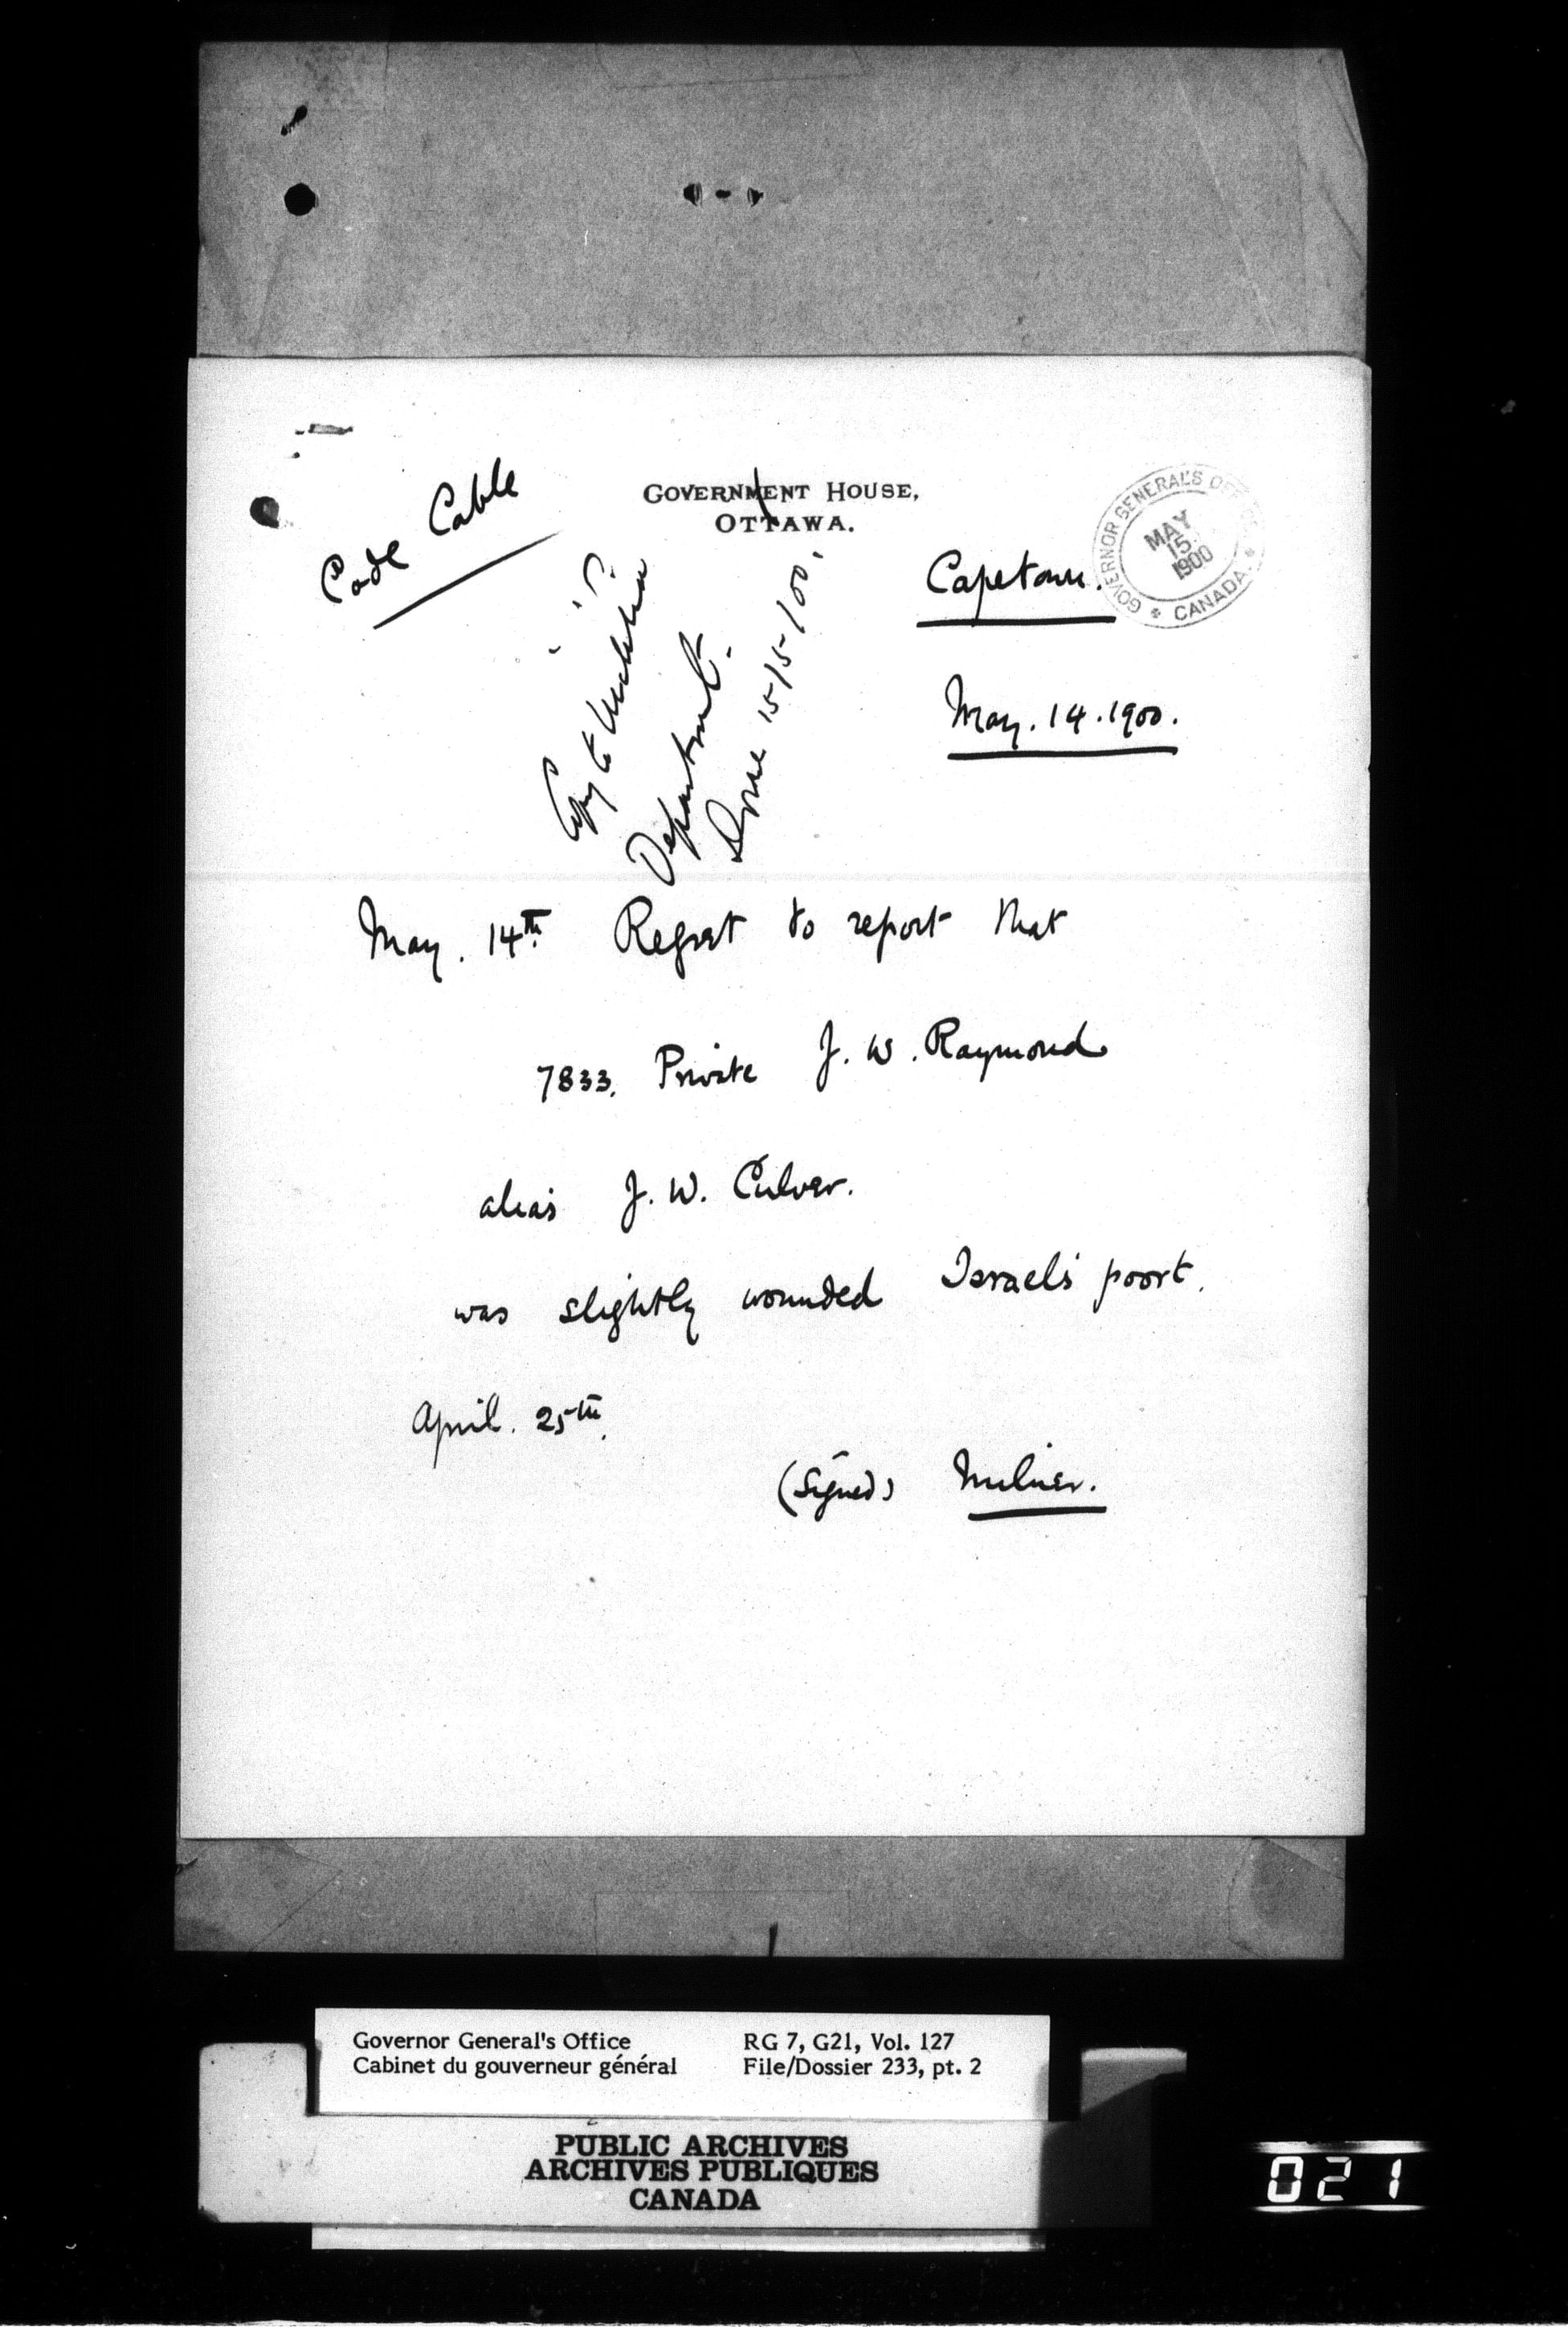 Code Cable
GOVERNMENT HOUSE,
OTTAWA.
GOVERNOR GENERAL'S OFFICE
MAY
15.
1900
* CANADA. *
Capetown.
May. 14. 1900.
Copy to Militia
Department.
Done 15/5/00.
May. 14th. Regret to report that
7833. Private J. W. Raymond
alias J. W. Culver.
was slightly wounded Israels poort.
April. 25th.
(Signed) Milner.
Governor General's Office
Cabinet du gouverneur général
RG 7, G21, Vol. 127
File/Dossier 233, pt. 2
PUBLIC ARCHIVES
ARCHIVES PUBLIQUES
CANADA
021